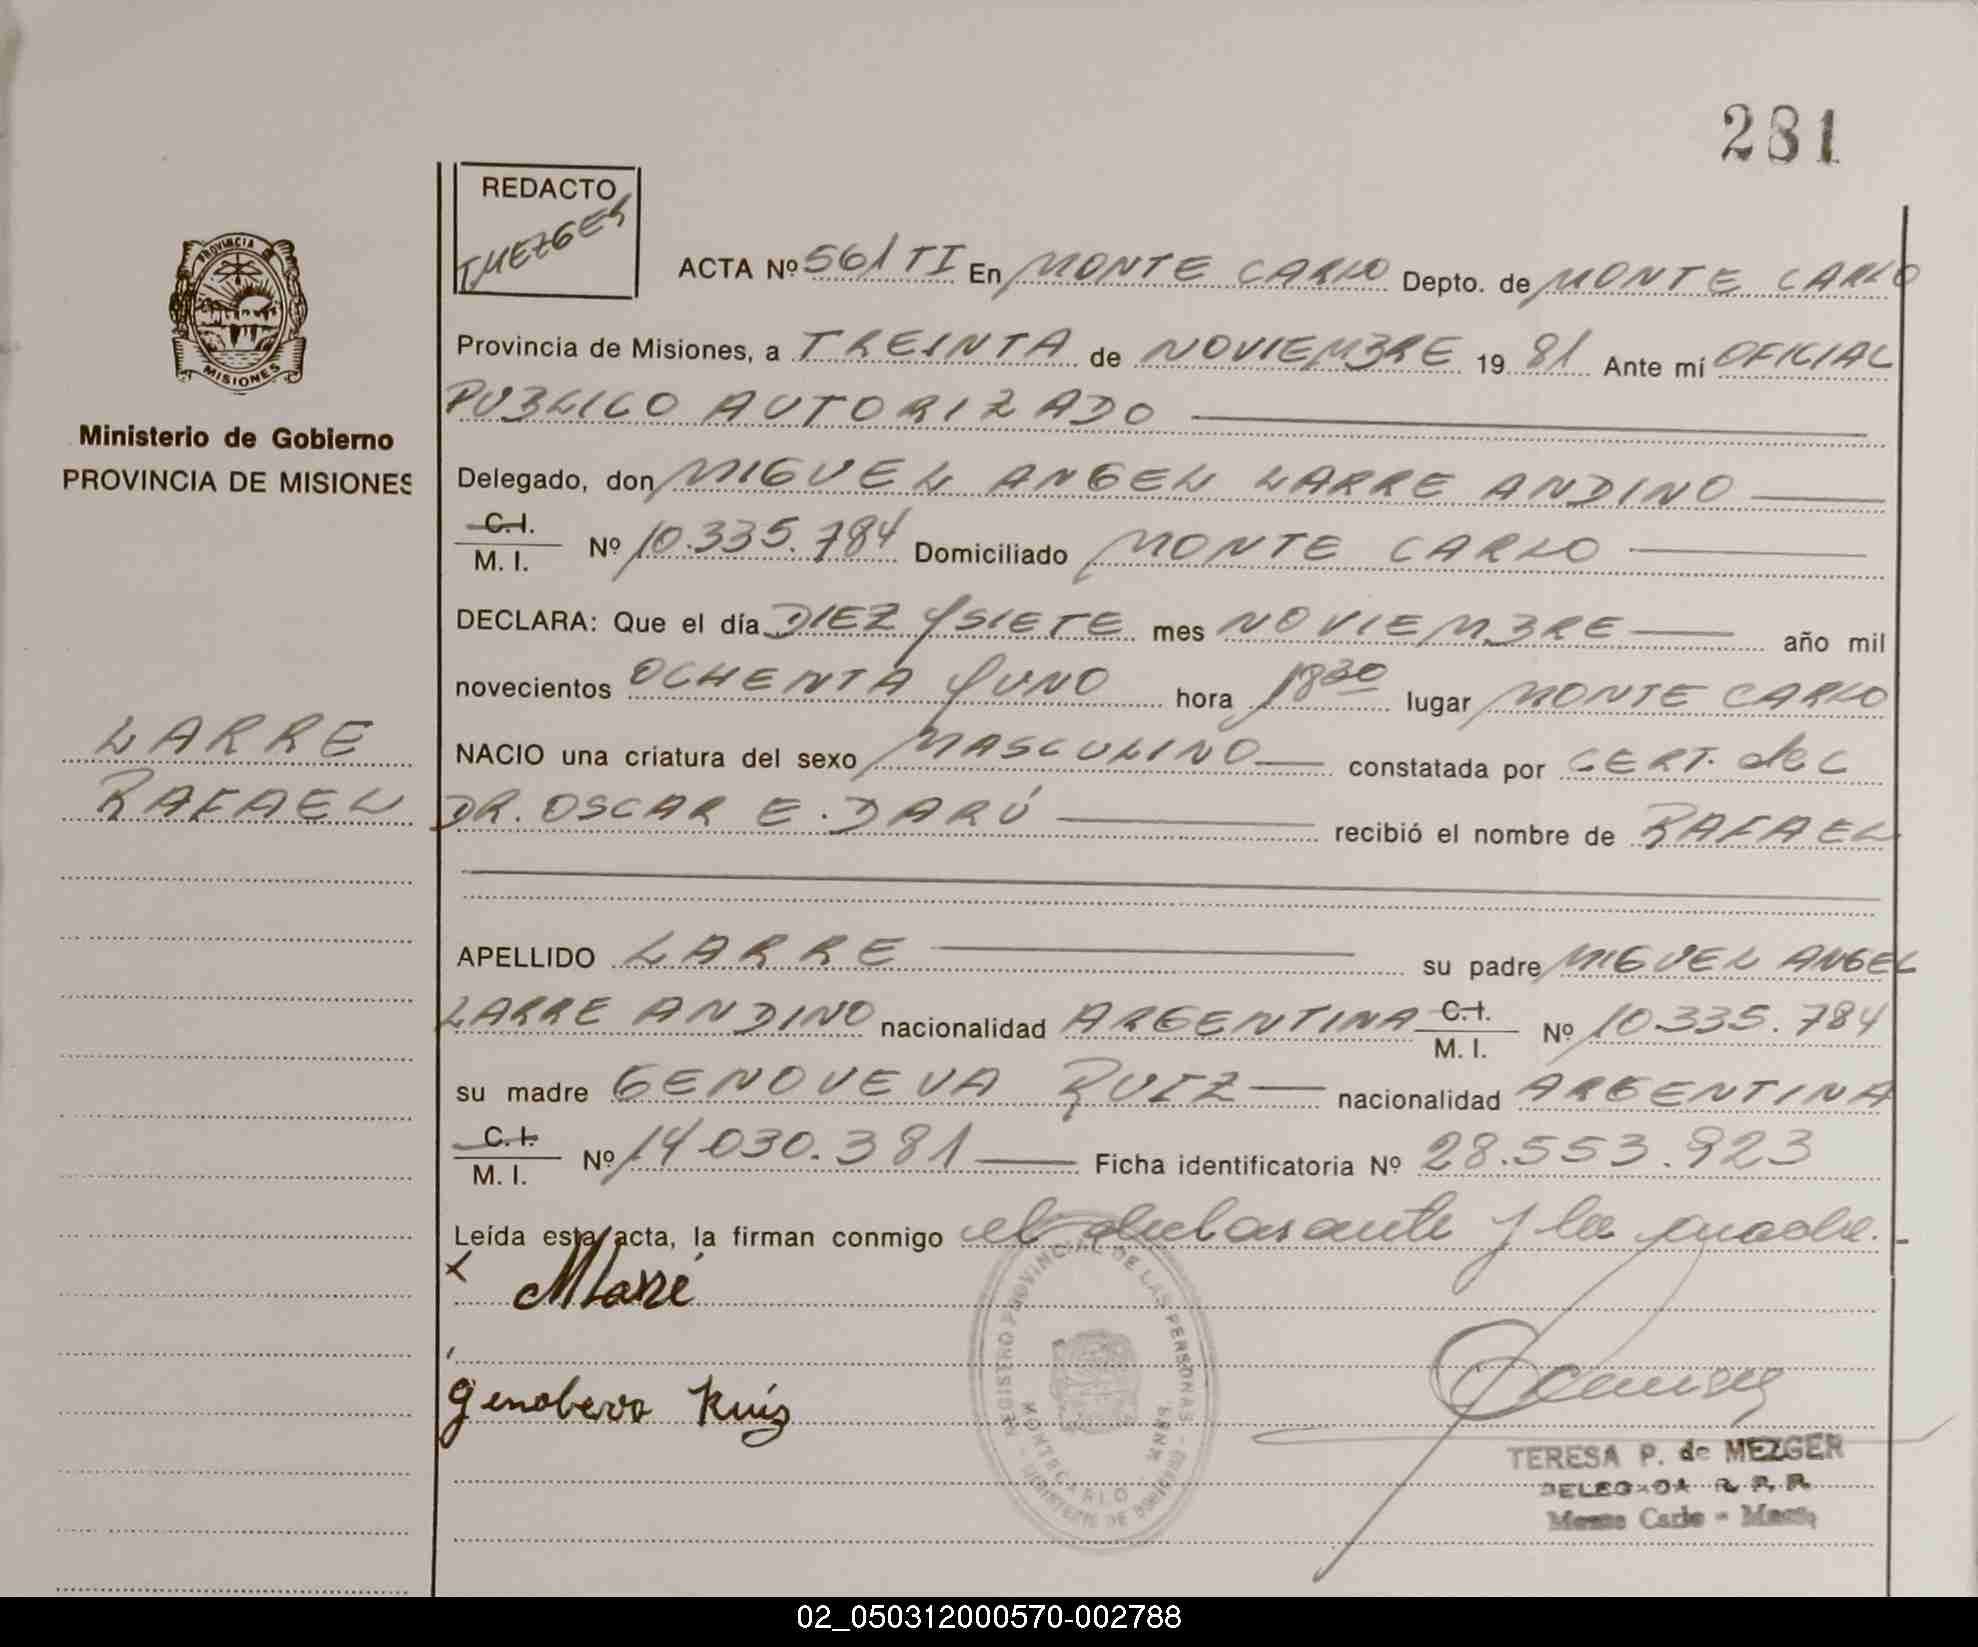 281
REDACTO
TMEZGER
PROVINCIA
MISIONES
Ministerio de Gobierno
PROVINCIA DE MISIONES
LARRE
RAFAEL
ACTA Nº 561 TI En MONTE CARLO Depto. de MONTE CARLO
Provincia de Misiones, a TREINTA de NOVIEMBRE 19 81 Ante mí OFICIAL
PUBLICO AUTORIZADO
Delegado, don MIGUEL ANGEL LARRE ANDINO
C.I.
M. I. Nº 10.335.784 Domiciliado MONTE CARLO
DECLARA: Que el día DIEZ Y SIETE mes NOVIEMBRE año mil
novecientos OCHENTA Y UNO hora 18 30 lugar MONTE CARLO
NACIO una criatura del sexo MASCULINO constatada por CERT. del
DR. OSCAR E. DARÚ recibió el nombre de RAFAEL
APELLIDO LARRE su padre MIGUEL ANGEL
LARRE ANDINO nacionalidad ARGENTINA C.I. M. I. Nº 10.335.784
su madre GENOVEVA RUIZ nacionalidad ARGENTINA
C.I.
M. I. Nº 14.030.381 Ficha identificatoria Nº 28.553.923
Leída esta acta, la firman conmigo el declarante y la madre.
x MLarré
Genobeva Ruíz
REGISTRO PROVINCIAL DE LAS PERSONAS
MONTECARLO
MINISTERIO DE GOBIERNO
TERESA P. de MEZGER
DELEGADA R. P. P.
Monte Carlo - Mnes.
02_050312000570-002788